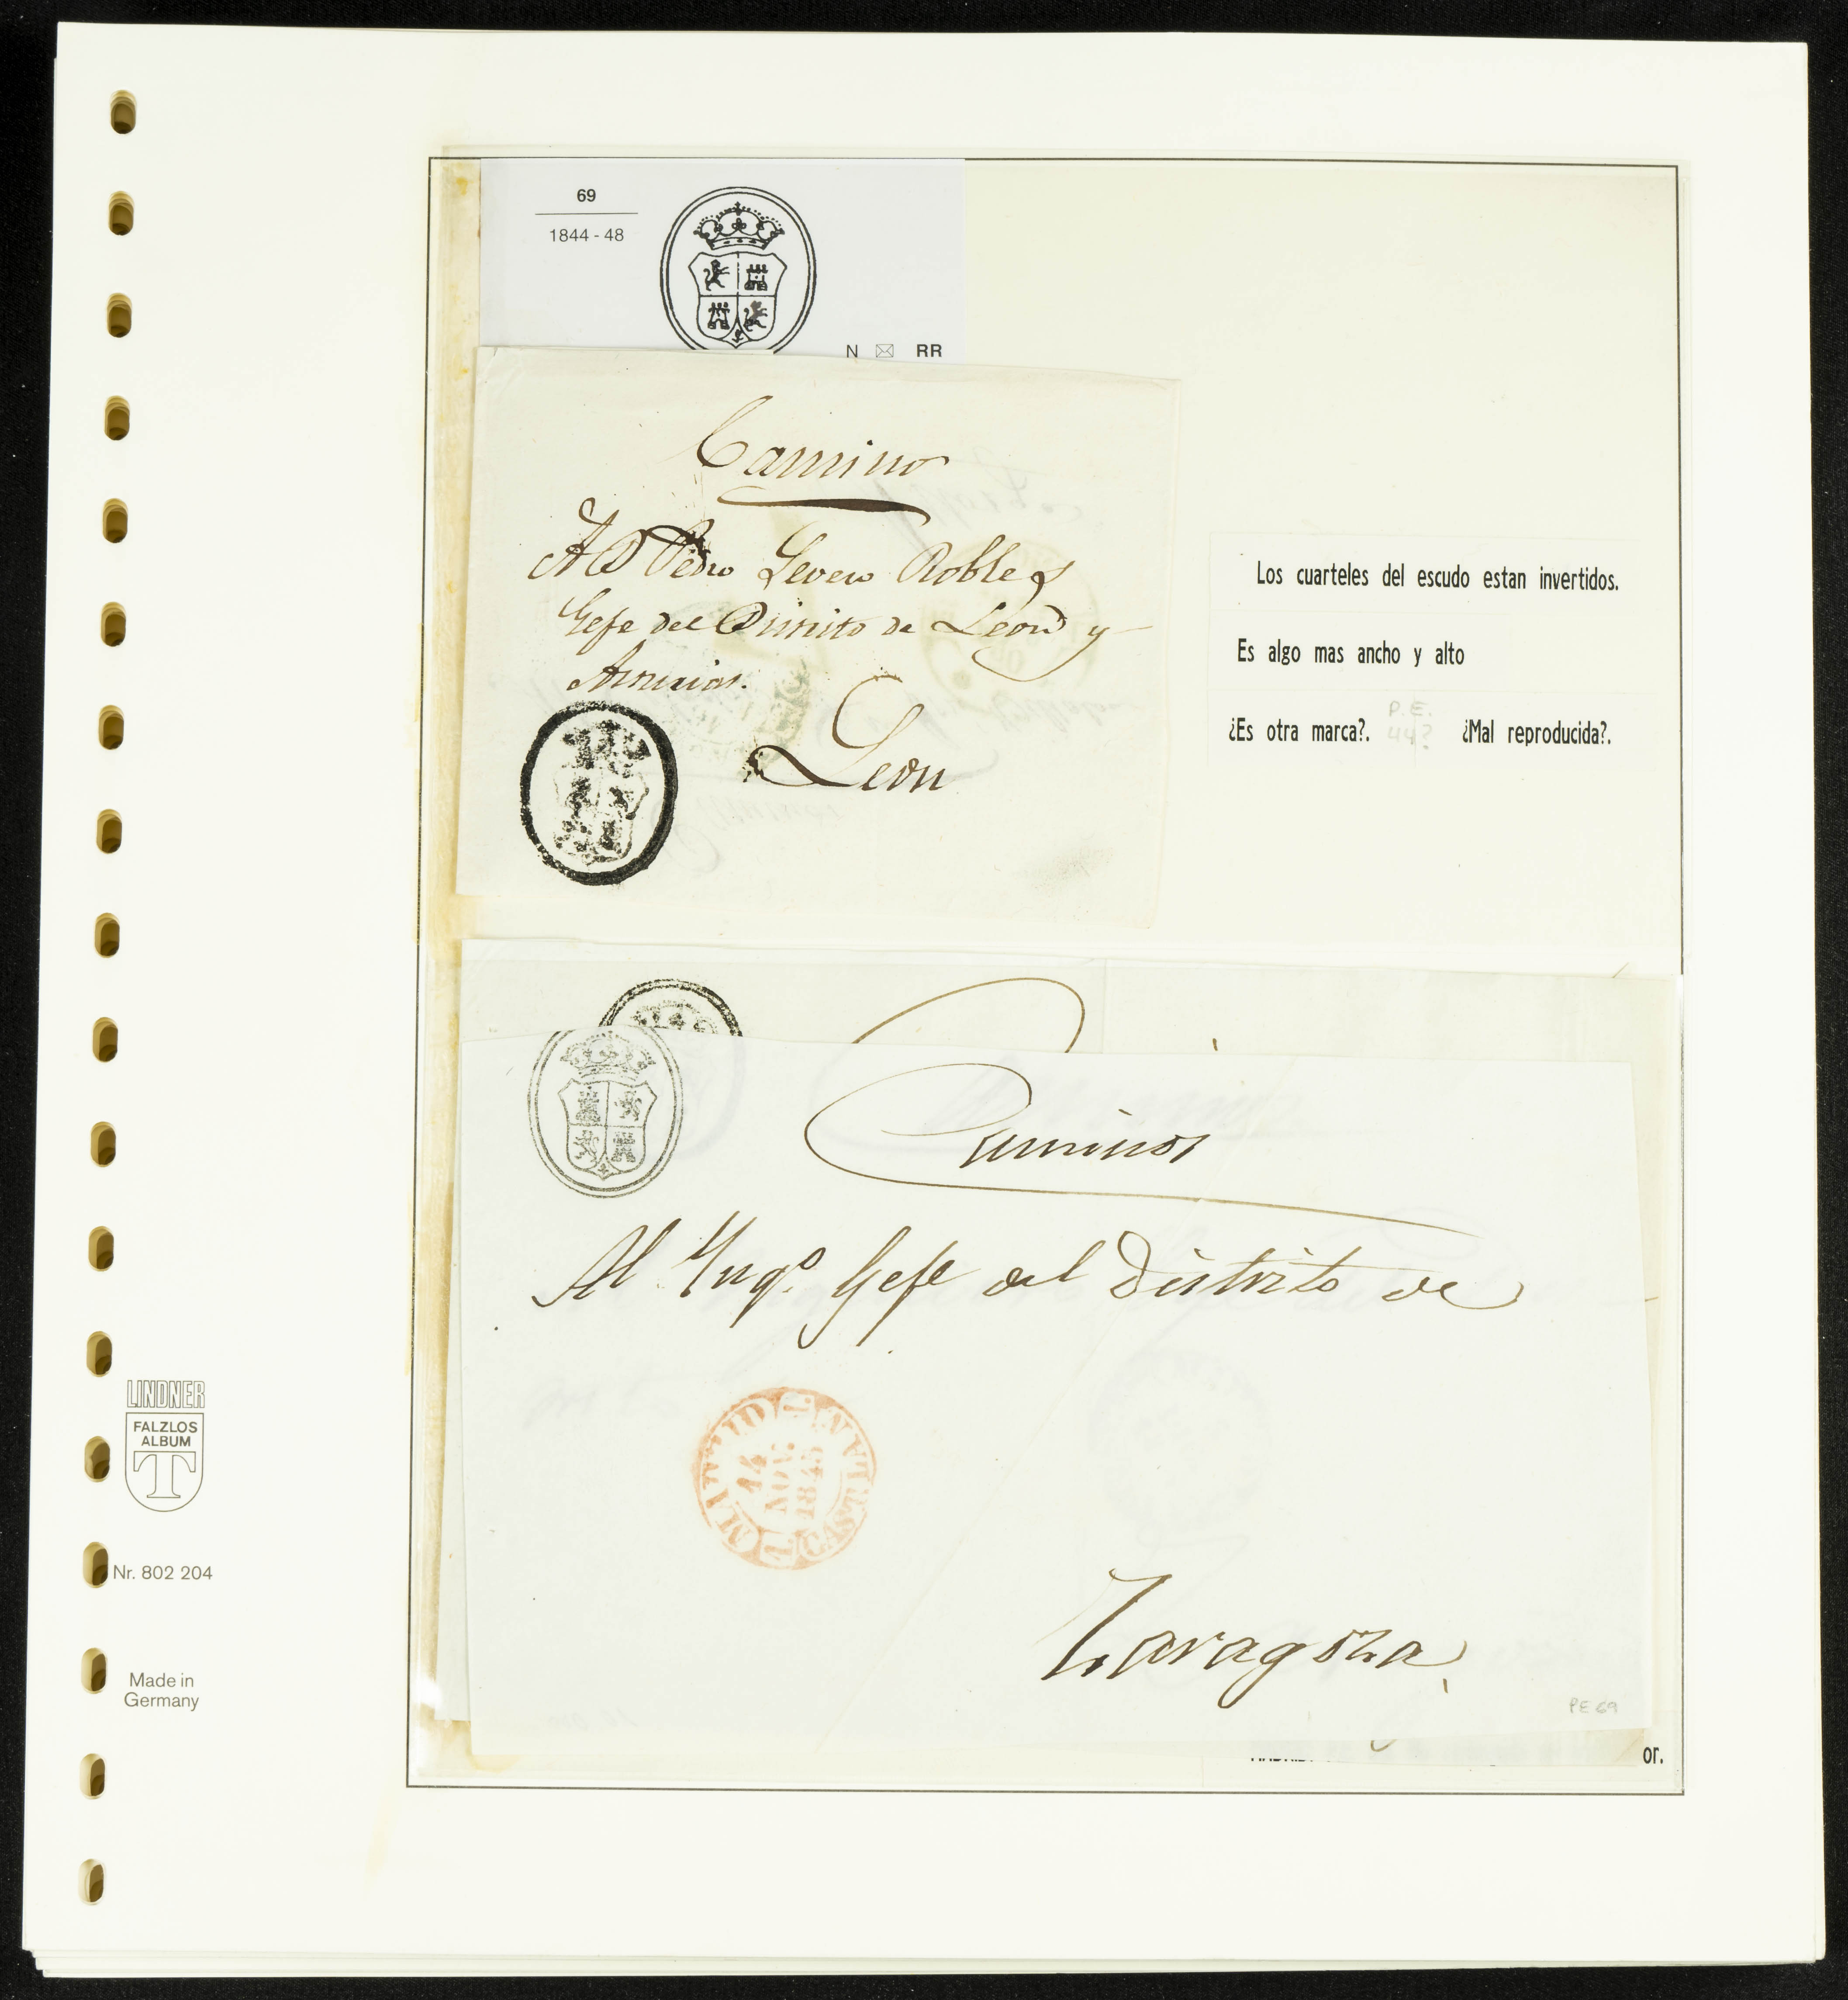 69
1844 - 48
N RR
Camino
A D Pedro Severo Robles
Gefe del Distrito de Leon y
Asturias.
Leon
Los cuarteles del escudo estan invertidos.
Es algo mas ancho y alto
¿Es otra marca?. P.E. 44? ¿Mal reproducida?.
Caminos
Al Yngo. Gefe del Distrito de
MADRID
14
NOV.
1845
CAST.LA N.
Zaragoza
PE 69
or.
LINDNER
FALZLOS
ALBUM
T
Nr. 802 204
Made in
Germany